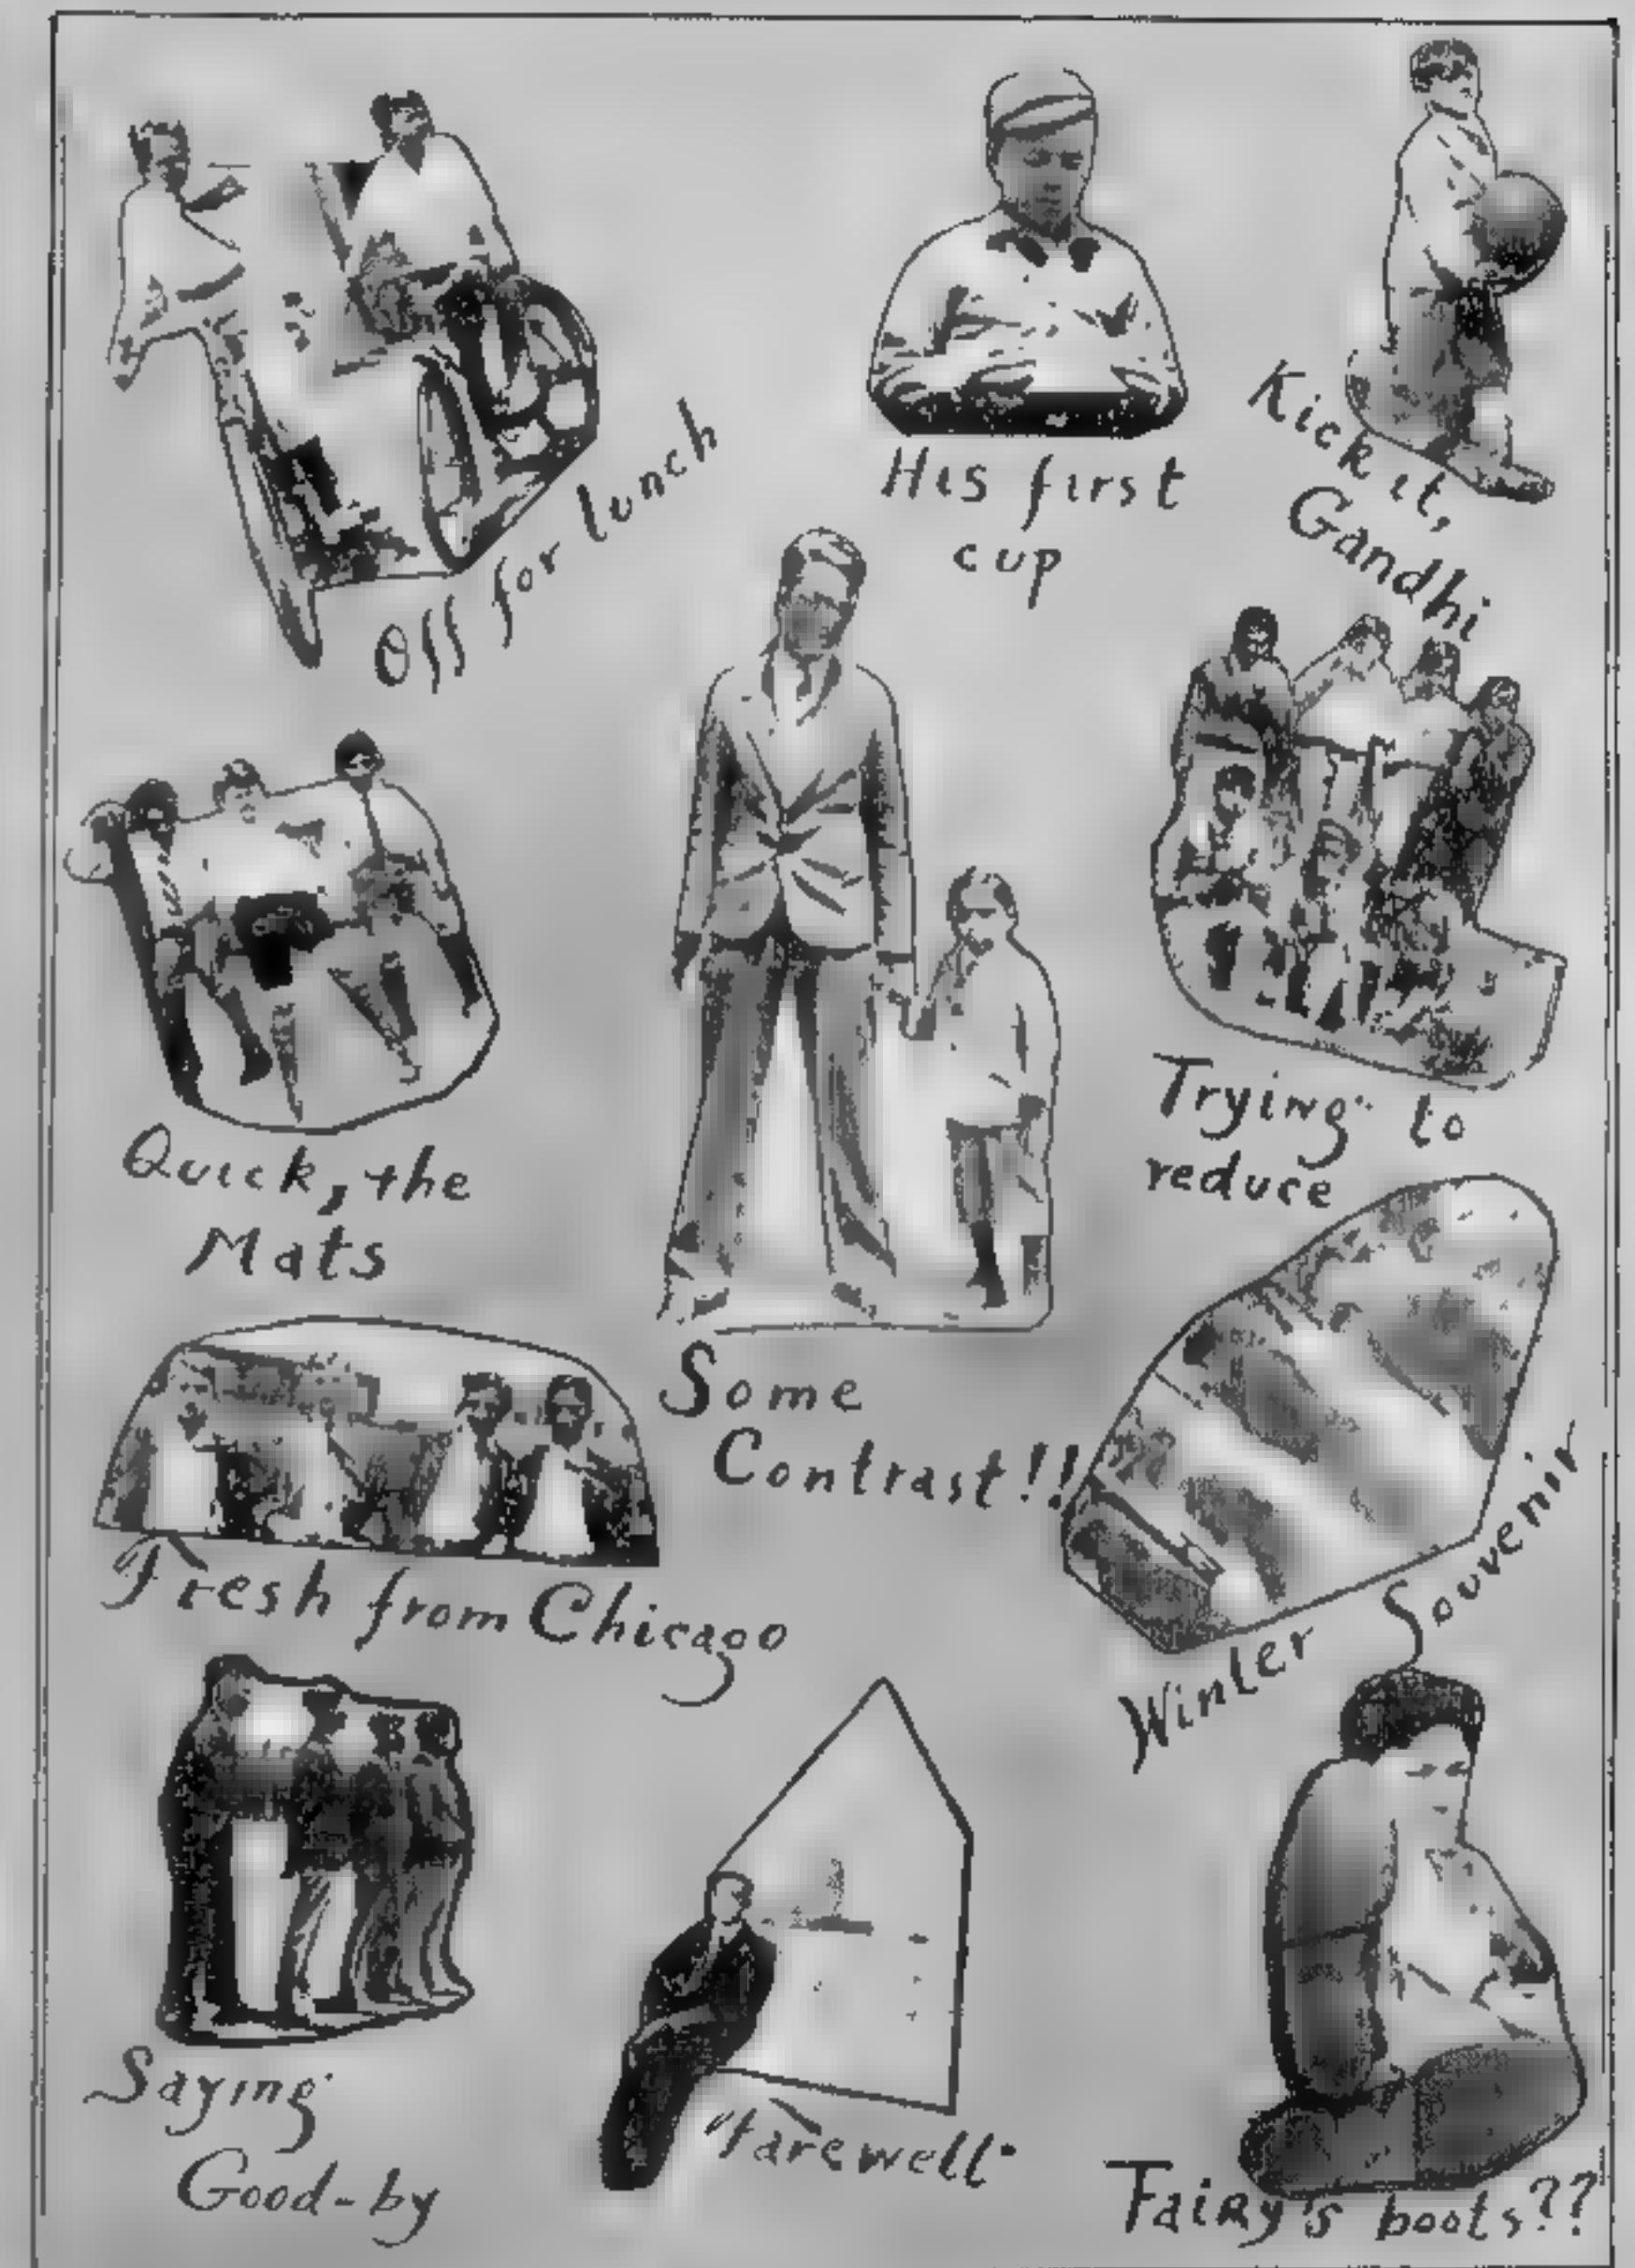 Off for lunch
His first
cup
Kick it,
Gandhi
Quick, the
Mats
Some
Contrast!!
Trying to
reduce
Fresh from Chicago
Winter Souvenir
Saying
Good-by
"Farewell"
Fairy's boots??